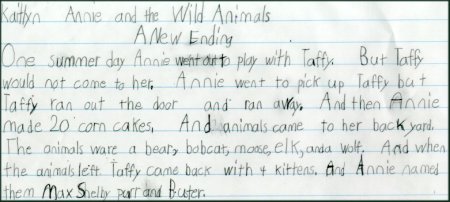 Kaitlyn Annie and the Wild Animals
A New Ending
One summer day Annie went out to play with Taffy. But Taffy
would not come to her. Annie went to pick up Taffy but
Taffy ran out the door and ran away. And then Annie
made 20 corn cakes. And animals came to her back yard.
The animals ware a bear, bobcat, moose, elk, and a wolf. And when
the animals left Taffy came back with 4 kittens. And Annie named
them Max Shelby purr and Buster.